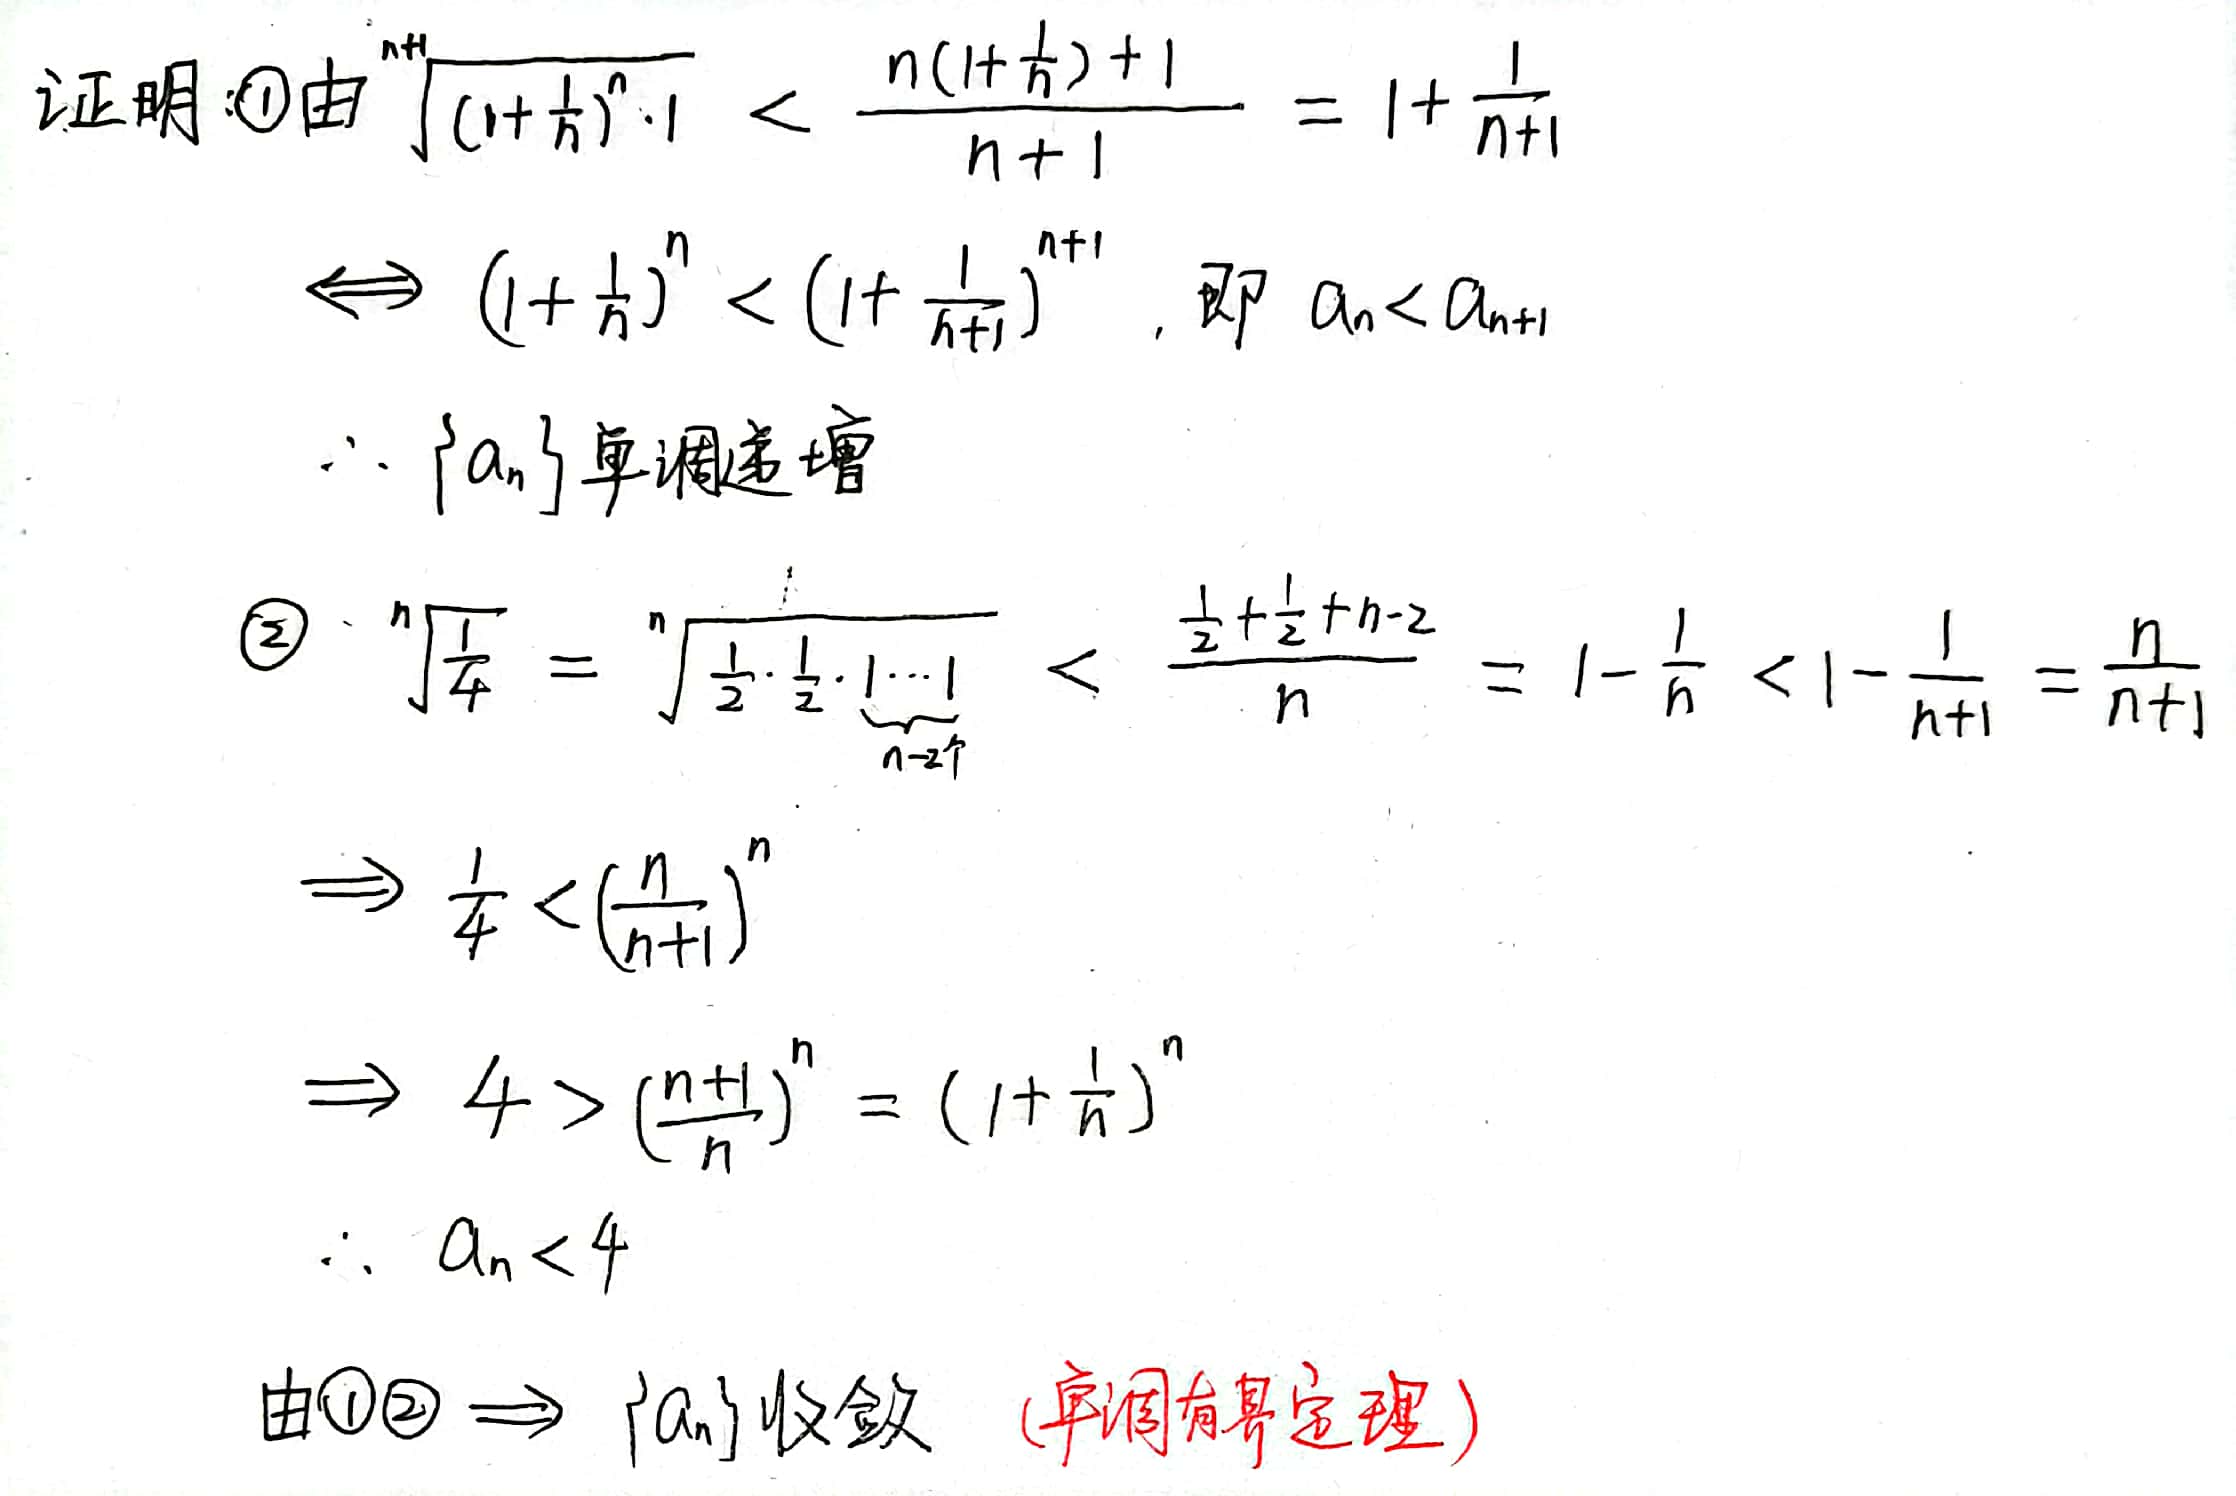 证明:①由 ⁿ⁺¹√((1+1/n)ⁿ·1) < (n(1+1/n)+1)/(n+1) = 1+1/(n+1)
⟺ (1+1/n)ⁿ < (1+1/(n+1))ⁿ⁺¹, 即 aₙ<aₙ₊₁
∴ {aₙ}单调递增
② ⁿ√(1/4) = ⁿ√(1/2·1/2·1…1) < (1/2+1/2+n-2)/n = 1-1/n < 1-1/(n+1) = n/(n+1)
n-2个
⟹ 1/4 < (n/(n+1))ⁿ
⟹ 4 > ((n+1)/n)ⁿ = (1+1/n)ⁿ
∴ aₙ<4
由①② ⟹ {aₙ}收敛 (单调有界定理)